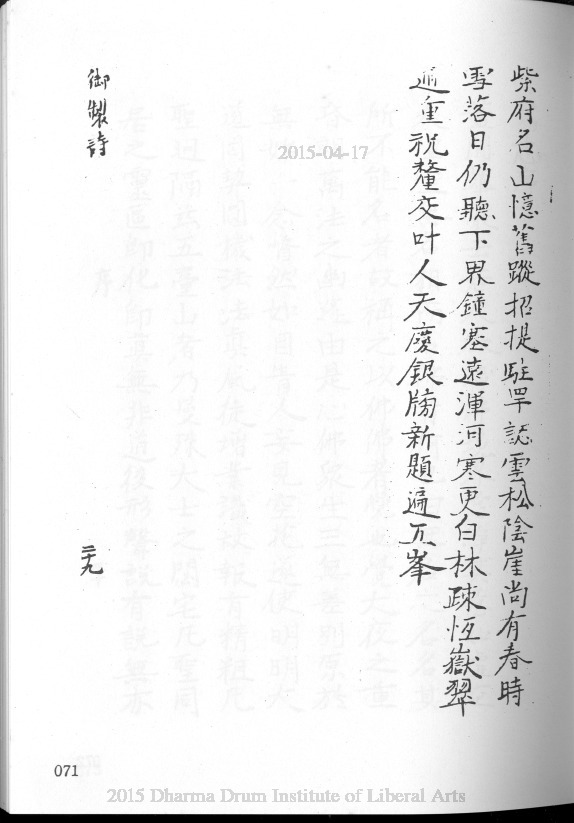 紫府名山憶舊蹤招提駐罕認雲松陰崖尚有春時
雪落日仍聽下界鐘塞遠渾河寒更白林疎恆嶽翠
逾重祝釐交叶人天慶銀牓新題遍五峯
御製詩
二十九
071
2015-04-17
2015 Dharma Drum Institute of Liberal Arts